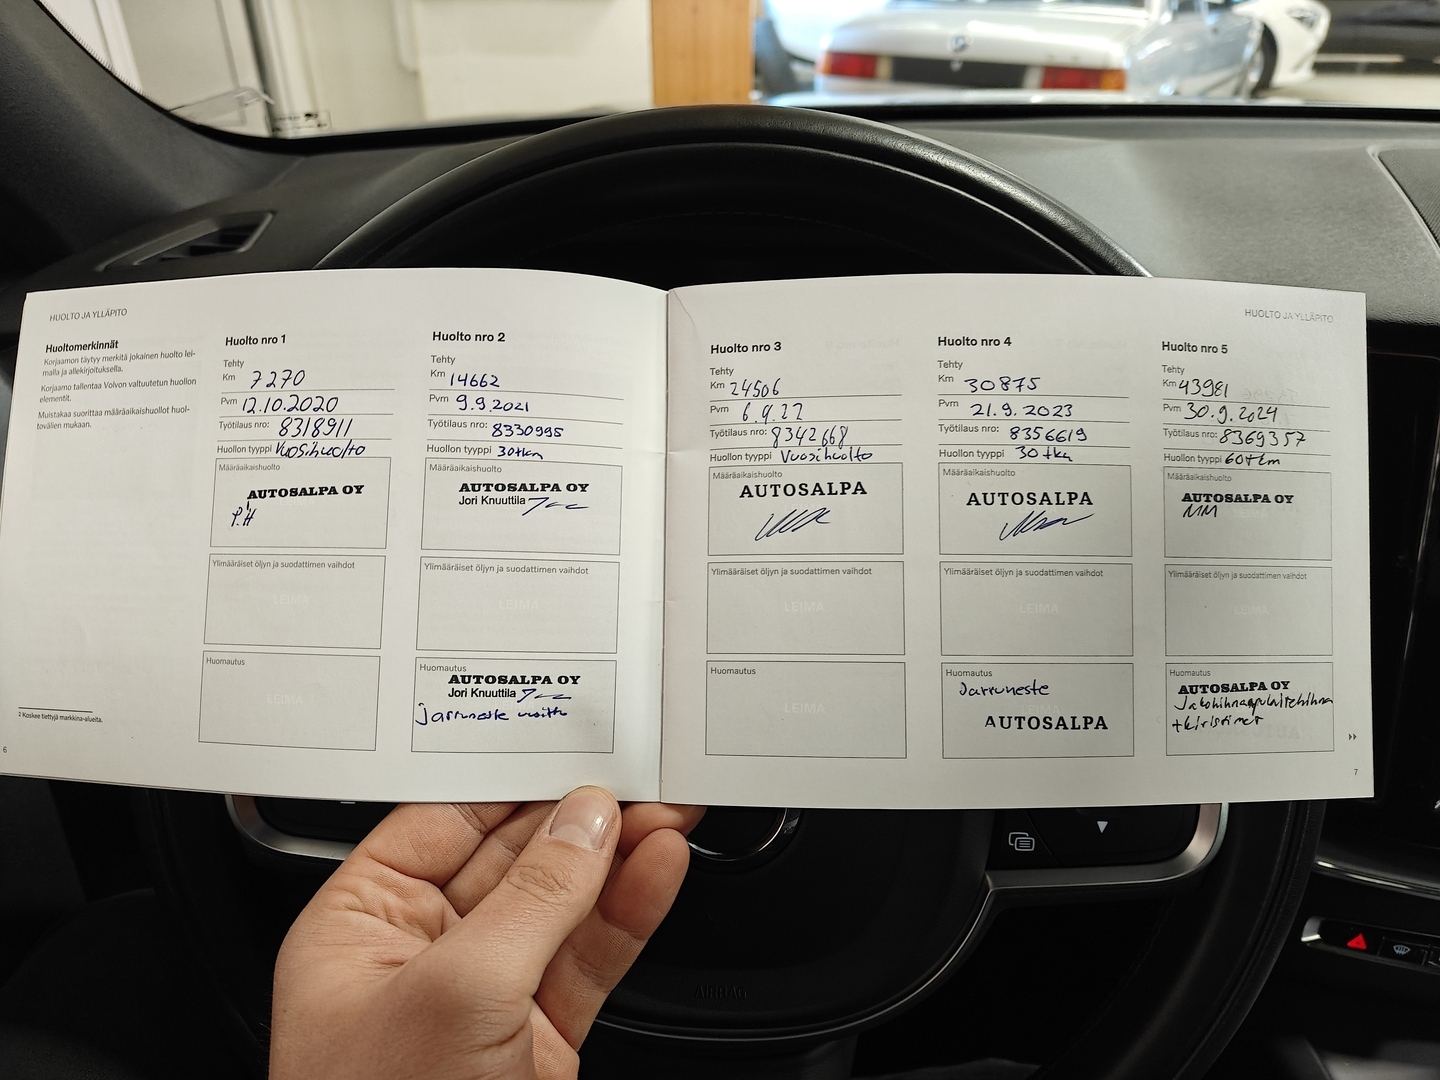 HUOLTO JA YLLÄPITO
Huoltomerkinnät
Korjaamon täytyy merkitä jokainen huolto lei-
malla ja allekirjoituksella.
Korjaamo tallentaa Volvon valtuutetun huollon
elementit.
Muistakaa suorittaa määräaikaishuollot huol-
tovälien mukaan.
2 Koskee tiettyjä markkina-alueita.
6
Huolto nro 1
Tehty
Km 7270
Pvm 12.10.2020
Työtilaus nro: 8318911
Huollon tyyppi Vuosihuolto
Määräaikaishuolto
AUTOSALPA OY
P.H
Ylimääräiset öljyn ja suodattimen vaihdot
LEIMA
Huomautus
LEIMA
Huolto nro 2
Tehty
Km 14662
Pvm 9.9.2021
Työtilaus nro: 8330995
Huollon tyyppi 30tkm
Määräaikaishuolto
AUTOSALPA OY
Jori Knuuttila
Ylimääräiset öljyn ja suodattimen vaihdot
LEIMA
Huomautus
AUTOSALPA OY
Jori Knuuttila
Jarruneste
HUOLTO JA YLLÄPITO
Huolto nro 3
Tehty
Km 24506
Pvm 6.9.22
Työtilaus nro: 8342668
Huollon tyyppi Vuosihuolto
Määräaikaishuolto
AUTOSALPA
Ylimääräiset öljyn ja suodattimen vaihdot
LEIMA
Huomautus
Huolto nro 4
Tehty
Km 30875
Pvm 21.9.2023
Työtilaus nro: 8356619
Huollon tyyppi 30tkm
Määräaikaishuolto
AUTOSALPA
Ylimääräiset öljyn ja suodattimen vaihdot
LEIMA
Huomautus
Jarruneste
AUTOSALPA
Huolto nro 5
Tehty
Km 43981
Pvm 30.9.2024
Työtilaus nro: 8369357
Huollon tyyppi 60tkm
Määräaikaishuolto
AUTOSALPA OY
MM
Ylimääräiset öljyn ja suodattimen vaihdot
LEIMA
Huomautus
AUTOSALPA OY
Jakohihna apulaitehihna
+kiristimet
7
AIRBAG